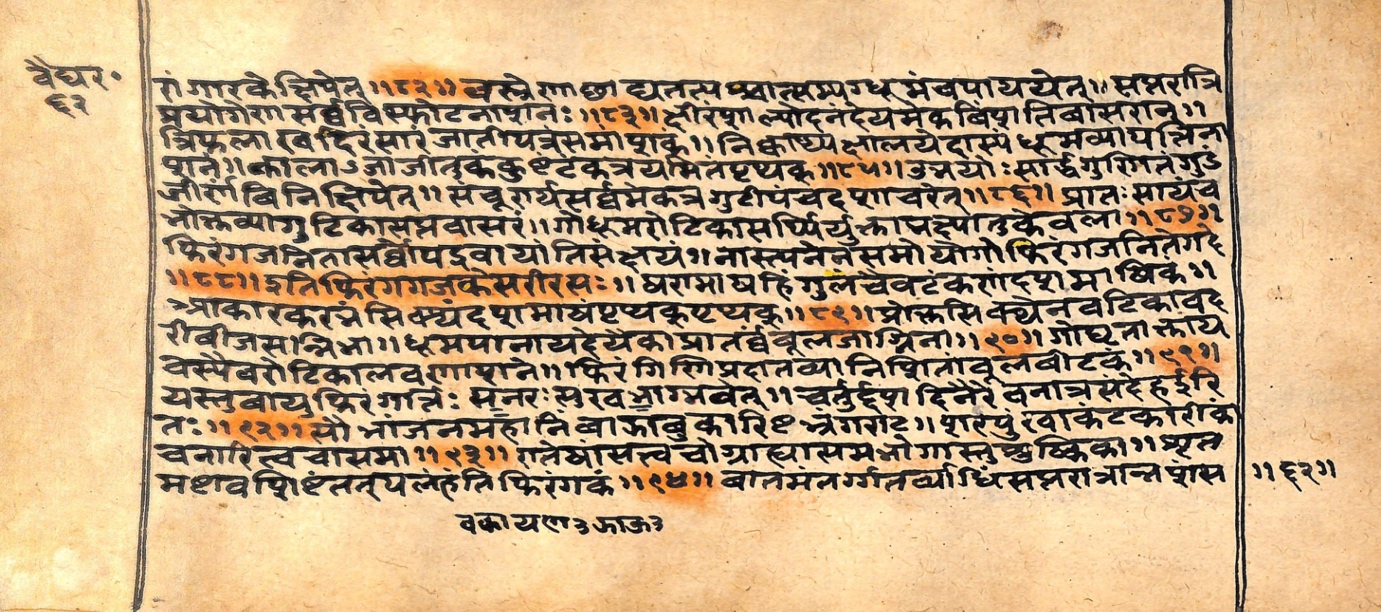 वैद्यर॰
६२
गंगारके क्षिपेत् ॥८२॥ वस्त्रेणाछाद्यतत्पश्चात्सम्यग्धूमंचपाययेत् ॥ सप्तरात्रि
प्रयोगेणसर्वविस्फोटनाशनः ॥८३॥ क्षीरंशाल्योदनंदेयमेकविंशतिवासरान् ॥
त्रिफलाखदिरंसारंजातीपत्रंसमांशकं ॥ निक्वाथ्यक्षालयेदास्यंधूमव्यापत्तिना
शनं ॥ कालाऽजाजीतुककुष्टंकत्रयमितंपृथक् ॥८५॥ उभयोः सार्द्धगुणितंगुडं
जीर्णंविनिक्षिपेत् ॥ संचूर्ण्यसर्वमेकत्रगुटीपंचदशाचरेत् ॥८६॥ प्रातःसायंच
भोक्तव्यागुटिकासप्तवासरं ॥ गोधूमरोटिकासर्प्पिर्युक्ताभक्ष्यातुकेवला ॥८७॥
फिरंगजनितासर्वोपद्रवायांतिसंक्षयं ॥ नास्त्यनेनसमोयोगोफिरंगजनितेगदे
॥८८॥ इतिफिरंगगजकेसरीरसः ॥ धरामाषहिंगुलंचैवटंकणंदशमाषिकं ॥
आकारकरभंसिक्थ्यंदशमाषंपृथक्पृथक् ॥८९॥ प्रोक्तसिक्थेनवटिकाबद
रीबीजसन्निभा ॥ धूमपानायदेयैकाप्रातर्बब्बूलजाग्निना ॥९०॥ गोघृताक्ताय
वेस्यैवरोटिकालवणाशने ॥ फिरंगिणिप्रदातव्यानिशितांबूलवीटकं ॥९१॥
यस्तुवायुफिरंगार्त्तः सनरःसुखभाग्भवेत् ॥ चतुर्द्दशदिनैरेवनात्रसंदेहईरि
तः ॥९२॥ सौभांजनमहानिंबाऊबुकारिष्टभंगराट ॥ शरपुंखाकटकारीकां
चनारित्वचासमा ॥९३॥ एतेषांसत्त्वचोग्राह्यासमभागास्तुशुष्किका ॥ शृत
मष्टावशिष्टंतत्पलंहंतिफिरंगकं ॥९४॥ वातमंतर्ग्गतव्याधिंसप्तरात्रान्नशंस
॥६२॥
वकायण३ऊाऊ३